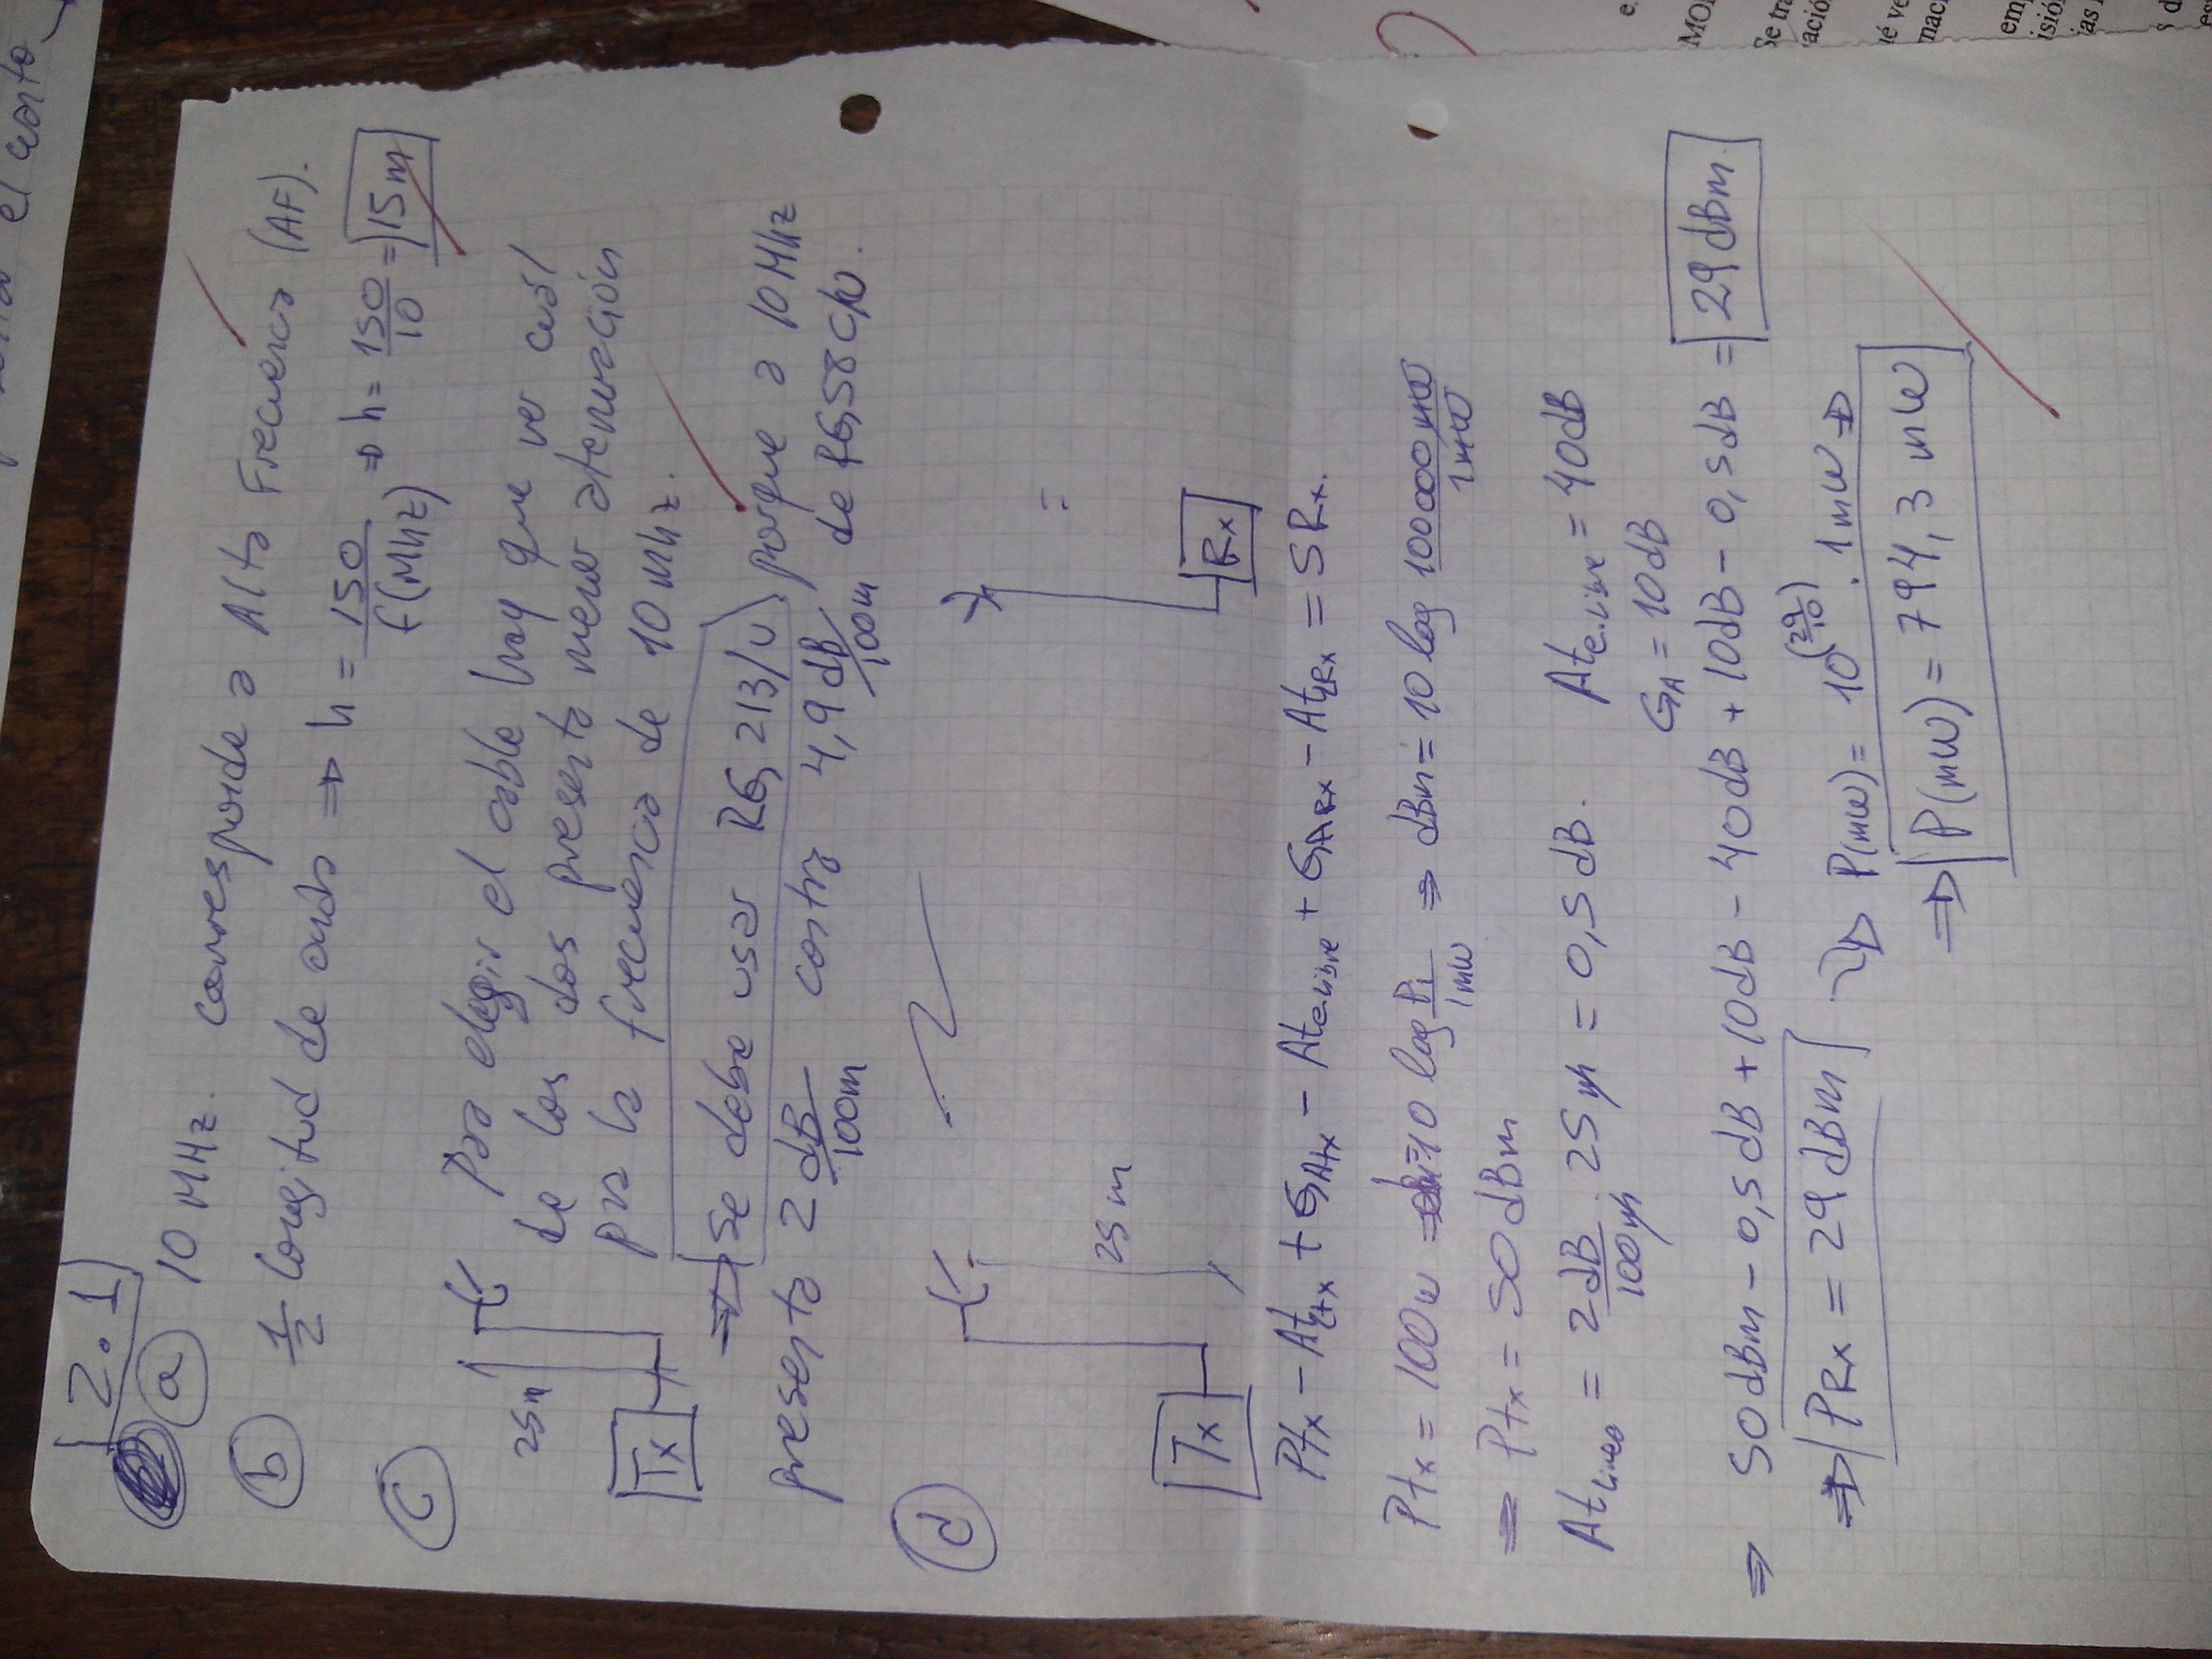 el cuarto
2.1
a 10 MHz. corresponde a Alta Frecuencia (AF).
b 1/2 longitud de onda ⇒ h = 150/f(MHz) ⇒ h = 150/10 = 15m
c
25m
Tx
Para elegir el cable hay que ver cuál
de los dos presenta menor atenuación
para la frecuencia de 10 MHz.
⇒ se debe usar RG 213/U porque a 10 MHz
presenta 2 dB/100m contra 4,9 dB/100m de RG58 C/U.
d
25 m
=
Tx
Rx
Ptx - AtLtx + GAtx - Ate.libre + GARx - AtLRx = SRx.
Ptx = 100w ⇒ dBm = 10 log P1/1mW ⇒ dBm = 10 log 100000 mW/1mW
⇒ Ptx = 50 dBm
AtLinea = 2 dB/100m . 25 m = 0,5 dB. Ate.libre = 40 dB
GA = 10 dB
⇒ 50 dBm - 0,5 dB + 10 dB - 40 dB + 10 dB - 0,5 dB = 29 dBm.
⇒ PRx = 29 dBm ⇒ P(mW) = 10^(29/10) . 1 mW ⇒
⇒ P(mW) = 794,3 mW
e.
MO
Se tra
ació
é ve
mac
em
isió
ias
s d
es